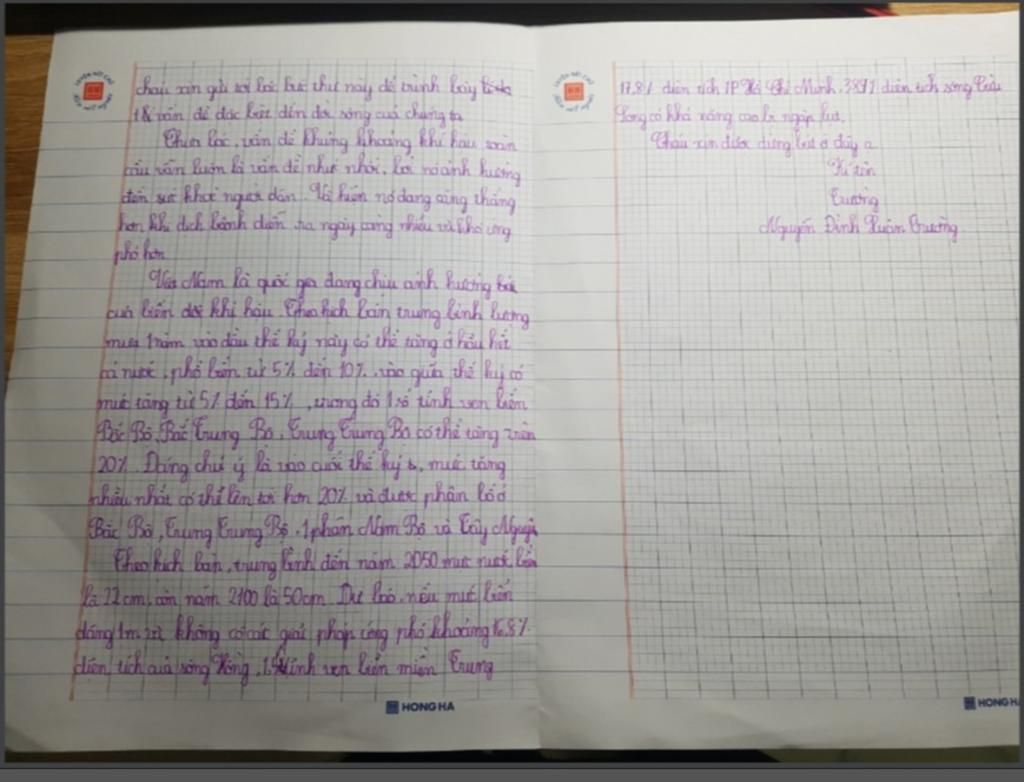 cháu xin gửi tới bác bức thư này để trình bày
1 & vấn đề đặc biệt đến đời sống của chúng ta
Thưa bác, vấn đề khủng khoảng khí hậu toàn
cầu vẫn luôn là vấn đề như nhối, bởi nó ảnh hưởng
đến sức khoẻ người dân. Và hiện nó đang căng thẳng
hơn khi dịch bệnh diễn ra ngày càng nhiều và khó ứng
phó hơn
Việt Nam là quốc gia đang chịu ảnh hưởng
của biến đổi khí hậu. Theo kịch bản trung bình lượng
mưa 1 năm vào đầu thế kỷ này có thể tăng ở hầu hết
cả nước, phổ biến từ 5% đến 10%, vào giữa thế kỷ có
mức tăng từ 5% đến 15%, trong đó 1 số tỉnh ven biển
Bắc Bộ, Bắc Trung Bộ, Trung Trung Bộ có thể tăng trên
20%. Đáng chú ý là vào cuối thế kỷ, mức tăng
nhiều nhất có thể lên tới hơn 20% và được phân bố ở
Bắc Bộ, Trung Trung Bộ, 1 phần Nam Bộ và Tây Nguyên
Theo kịch bản, trung bình đến năm 2050 mực nước biển
là 22cm, còn năm 2100 là 50cm. Dự báo, nếu mực biển
dâng 1m và không có các giải pháp ứng phó khoảng 16.8%
diện tích của sông Hồng, 1.5% tỉnh ven biển miền Trung
HONG HA
17.8% diện tích TP Hồ Chí Minh. 38.9% diện tích sông Cửu
Long có khả năng cao bị ngập lụt.
Cháu xin được dừng bút ở đây ạ
Kí tên
Trường
Nguyễn Đình Xuân Trường
HONG HA